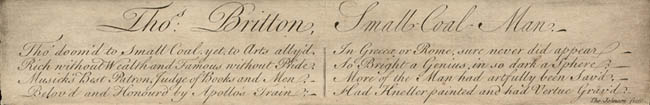 Tho.s Britton, Small Coal Man.
Tho' doom'd to Small Coal, yet to Arts ally'd
Rich without Wealth and Famous without Pride
Musick's Best Patron, Judge of Books and Men
Belov'd and Honour'd by Apollo's Train
In Greece or Rome, sure never did appear
So Bright a Genius, in so dark a Sphere
More of the Man had artfully been Sav'd
Had Kneller painted and had Vertue Grav'd
Tho. Johnson fecit